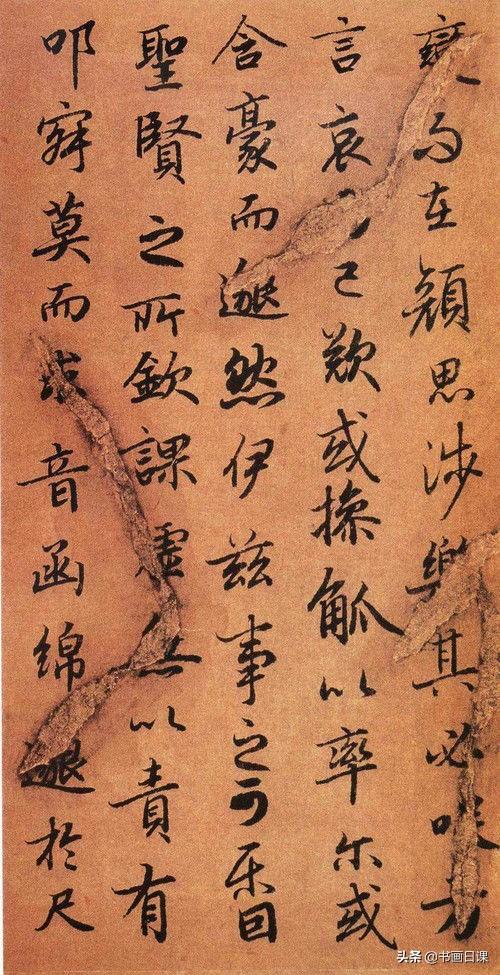 變而在顏思涉樂其必咲方
言哀已歎或操觚以率尓或
含豪而邈然伊茲事之可樂固
聖賢之所欽課虛無以責有
叩寂莫而求音函綿邈於尺
头条 @书画日课